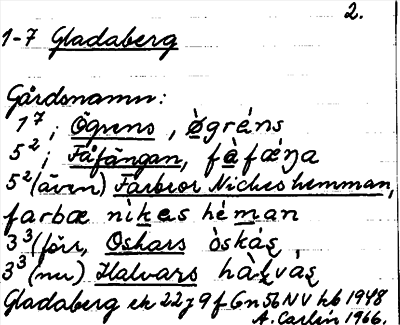 2.
1-7 Gladaberg
Gårdsnamn:
1⁷; Ögrens, øgréns
5²; Fåfängan, fàfǽŋa
5² (även) Farbror Nickes hemman,
farbæ nìkes héman
3³ (förr, Oskars òskáş
3³ (nu) Halvars hàļváş
Gladaberg ek 22j9f Gn56NV hb 1948
A. Carlín 1966.